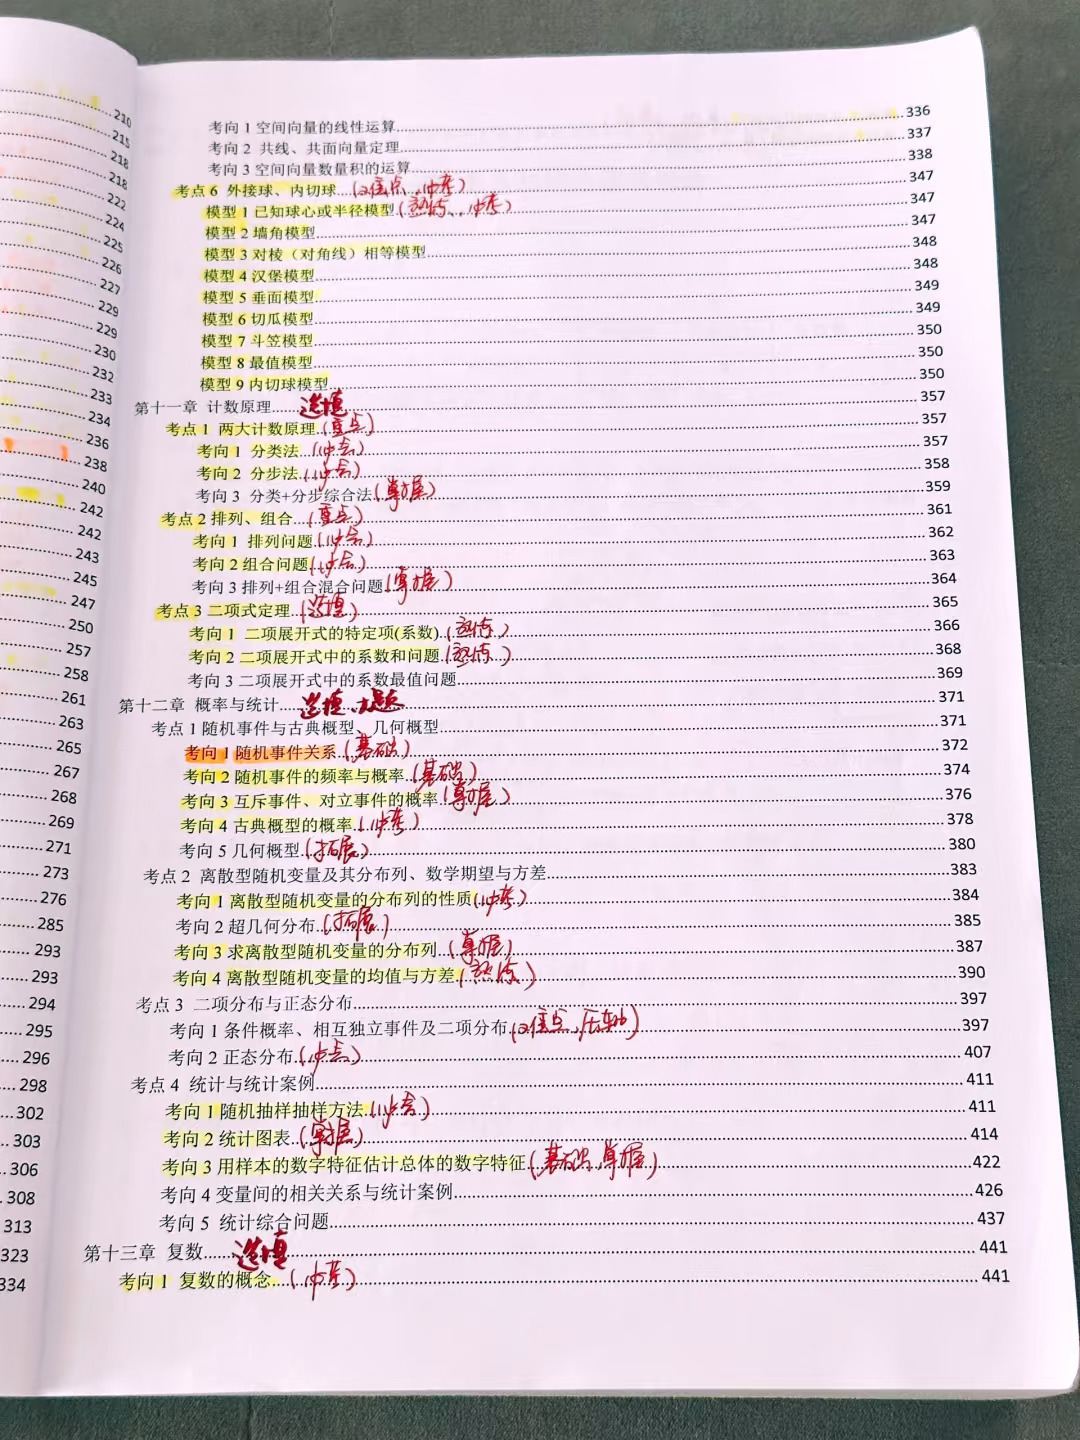 210
215
218
218
222
224
225
226
227
229
229
230
232
233
234
236
238
240
242
242
243
245
247
250
257
258
261
263
265
267
268
269
271
273
276
285
293
293
294
295
296
298
302
303
306
308
313
323
334
考向 1 空间向量的线性运算 336
考向 2 共线、共面向量定理 337
考向 3 空间向量数量积的运算 338
考点 6 外接球、内切球 (难点、必考) 347
模型 1 已知球心或半径模型 (熟练、必考) 347
模型 2 墙角模型 347
模型 3 对棱（对角线）相等模型 348
模型 4 汉堡模型 348
模型 5 垂面模型 349
模型 6 切瓜模型 349
模型 7 斗笠模型 350
模型 8 最值模型 350
模型 9 内切球模型 350
第十一章 计数原理 选填 357
考点 1 两大计数原理 (重点) 357
考向 1 分类法 (必会) 357
考向 2 分步法 (必会) 358
考向 3 分类+分步综合法 (掌握) 359
考点 2 排列、组合 (重点) 361
考向 1 排列问题 (必会) 362
考向 2 组合问题 (必会) 363
考向 3 排列+组合混合问题 (掌握) 364
考点 3 二项式定理 (选填) 365
考向 1 二项展开式的特定项(系数) (熟练) 366
考向 2 二项展开式中的系数和问题 (熟练) 368
考向 3 二项展开式中的系数最值问题 369
第十二章 概率与统计 选填、大题 371
考点 1 随机事件与古典概型、几何概型 371
考向 1 随机事件关系 (基础) 372
考向 2 随机事件的频率与概率 (基础) 374
考向 3 互斥事件、对立事件的概率 (掌握) 376
考向 4 古典概型的概率 (必考) 378
考向 5 几何概型 (拓展) 380
考点 2 离散型随机变量及其分布列、数学期望与方差 383
考向 1 离散型随机变量的分布列的性质 (必考) 384
考向 2 超几何分布 (拓展) 385
考向 3 求离散型随机变量的分布列 (掌握) 387
考向 4 离散型随机变量的均值与方差 (熟练) 390
考点 3 二项分布与正态分布 397
考向 1 条件概率、相互独立事件及二项分布 (难点、压轴) 397
考向 2 正态分布 (必会) 407
考点 4 统计与统计案例 411
考向 1 随机抽样抽样方法 (必会) 411
考向 2 统计图表 (掌握) 414
考向 3 用样本的数字特征估计总体的数字特征 (基础、掌握) 422
考向 4 变量间的相关关系与统计案例 426
考向 5 统计综合问题 437
第十三章 复数 选填 441
考向 1 复数的概念 (必考) 441